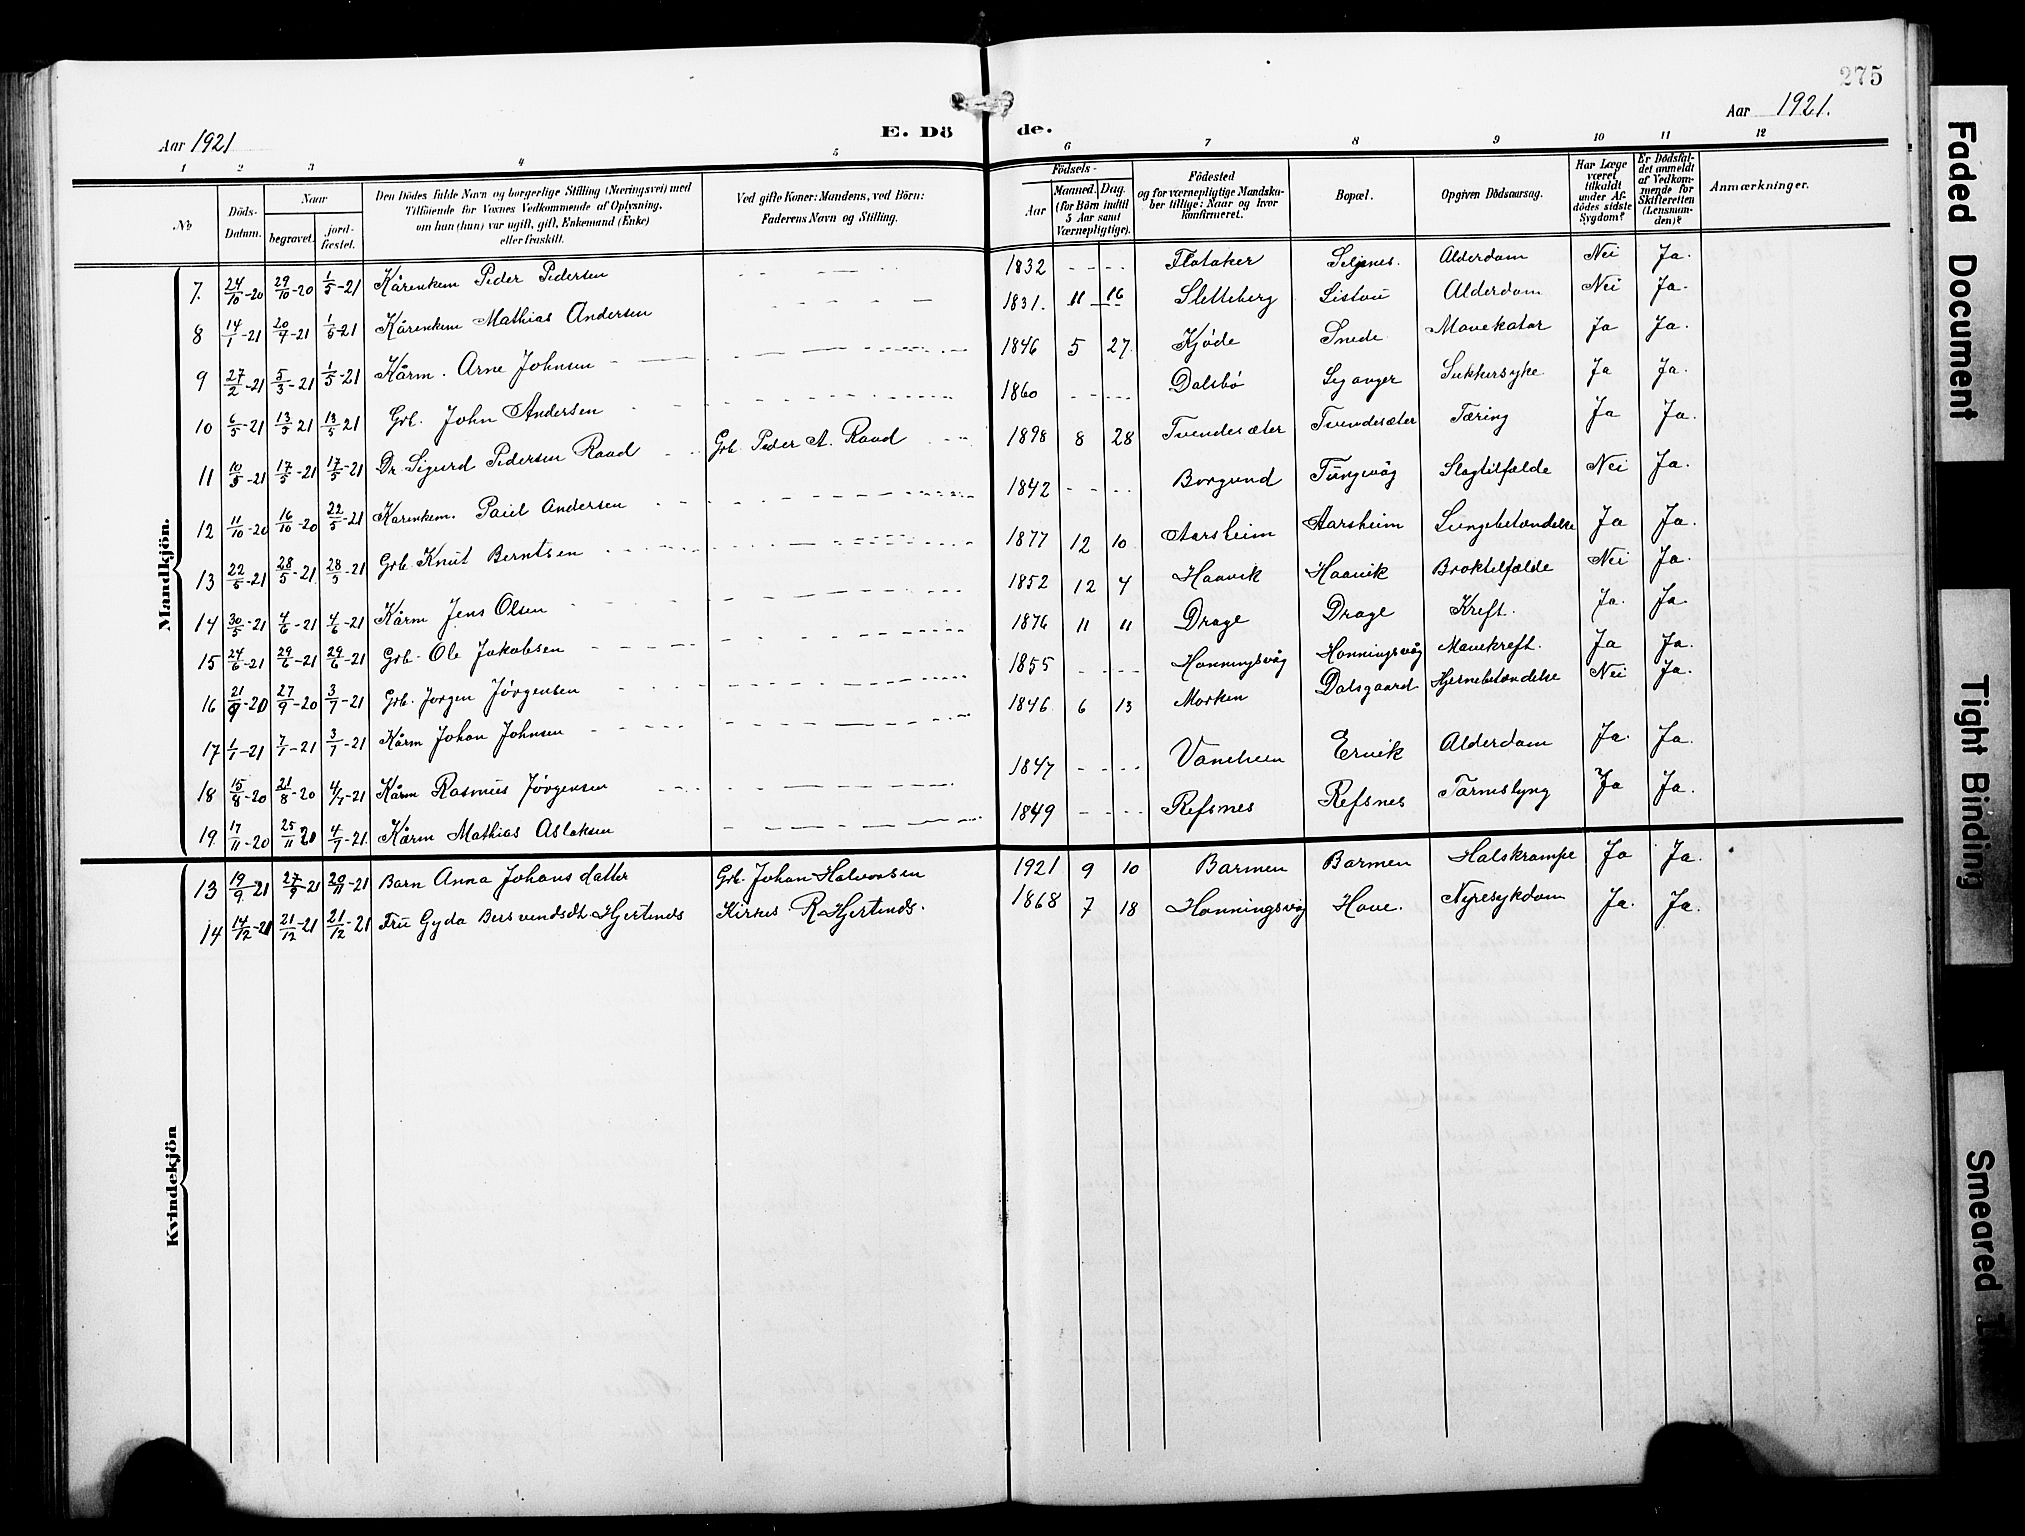 275
Aar 1921
E. Dö de.
Aar 1921.
1 2 3 4 5 6 7 8 9 10 11 12
No
Döds-Datum.
Naar
begravet.
jord-fæstet.
Den Dödes fulde Navn og borgerlige Stilling (Næringsvei) med
Tilföiende for Voxnes Vedkommende af Oplysning,
om han (hun) var ugift, gift, Enkemand (Enke)
eller fraskilt.
Ved gifte Koner: Mandens, ved Börn:
Faderens Navn og Stilling.
Födsels-
Aar
Maaned. Dag.
(for Börn indtil
5 Aar samt
Værnepligtige).
Födested
og for værnepligtige Mandska-
ber tillige: Naar og hvor
konfirmeret.
Bopæl.
Opgiven Dödsaarsag.
Har Læge
været
tilkaldt
under Af-
dödes sidste
Sygdom?
Er Dödsfal-
det anmeldt
af Vedkom-
mende for
Skifteretten
(Lensman-
den)?
Anmærkninger.
Mandkjön.
7. 24/10-20 29/10-20 1/5-21 Kårenkem Peder Pedersen 1832 Flataker Seljenes. Alderdom Nei Ja.
8 14/1-21 20/1-21 1/5-21 Kårenkem Mathias Andersen 1831. 11 16 Sletteberg Listou Alderdom Nei Ja.
9 27/2-21 5/3-21 1/5-21 Kårm. Arne Johnsen 1846 5 27 Kjøde Snede Mavekatar Ja Ja.
10 6/5-21 13/5 21 13/5 21 Grb. John Andersen 1860 Dalsbø Leganger Sukkersyke Ja Ja.
11 10/5-21 17/5-21 17/5-21 Dr. Sigurd Pedersen Raad Grb. Peder A. Raad 1898 8 28 Tvendesæter Tvendesæter Tæring Ja Ja.
12 11/10-20 16/10-20 22/5-21 Karenkem. Paul Andersen 1842 Borgund Tungevåg Slagtilfælde Nei Ja.
13 22/5-21 28/5-21 28/5-21 Grb. Knut Berntsen 1877 12 10 Aarsheim Aarsheim Lungebetændelse Ja Ja.
14 30/5-21 4/6-21 4/6-21 Kårm Jens Olsen 1852 12 4 Haavik Haavik Broktilfælde Nei Ja.
15 24/6-21 29/6-21 29/6-21 Grb. Ole Jakobsen 1876 11 11 Drage Drage Kreft. Ja. Ja
16 21/9-20 27/9-20 3/7-21 Grb. Jørgen Jørgensen 1855 Honningsvåg Honningsvåg Mavekreft. Ja Ja.
17 1/1-21 7/1-21 3/7-21 Kårm Johan Johnsen 1846 6 13 Morken Dalsgaard Hjernebetændelse Nei Ja.
18 15/8-20 21/8-20 4/7-21 Kårm Rasmus Jørgensen 1847 Ervik Alderdom Ja. Ja.
19 17/11-20 25/11 20 4/7-21 Kårm Mathias Aslaksen 1849 Refsnes Refsnes Tarmslyng Ja Ja.
Kvindekjön
13 19/9-21 27/9-21 20/11-21 Barn Anna Johansdatter Grb. Johan Halvorsen 1921 9 10 Barmen Barmen Halskrampe Ja Ja.
14 14/12-21 21/12-21 21/12-21 Fru Gyda Hjertenes Kirkes R Hjertenes. 1868 7 18 Honningsvåg Hove. Nyresykdom Ja. Ja.
Faded Document
Tight Binding
Smeared